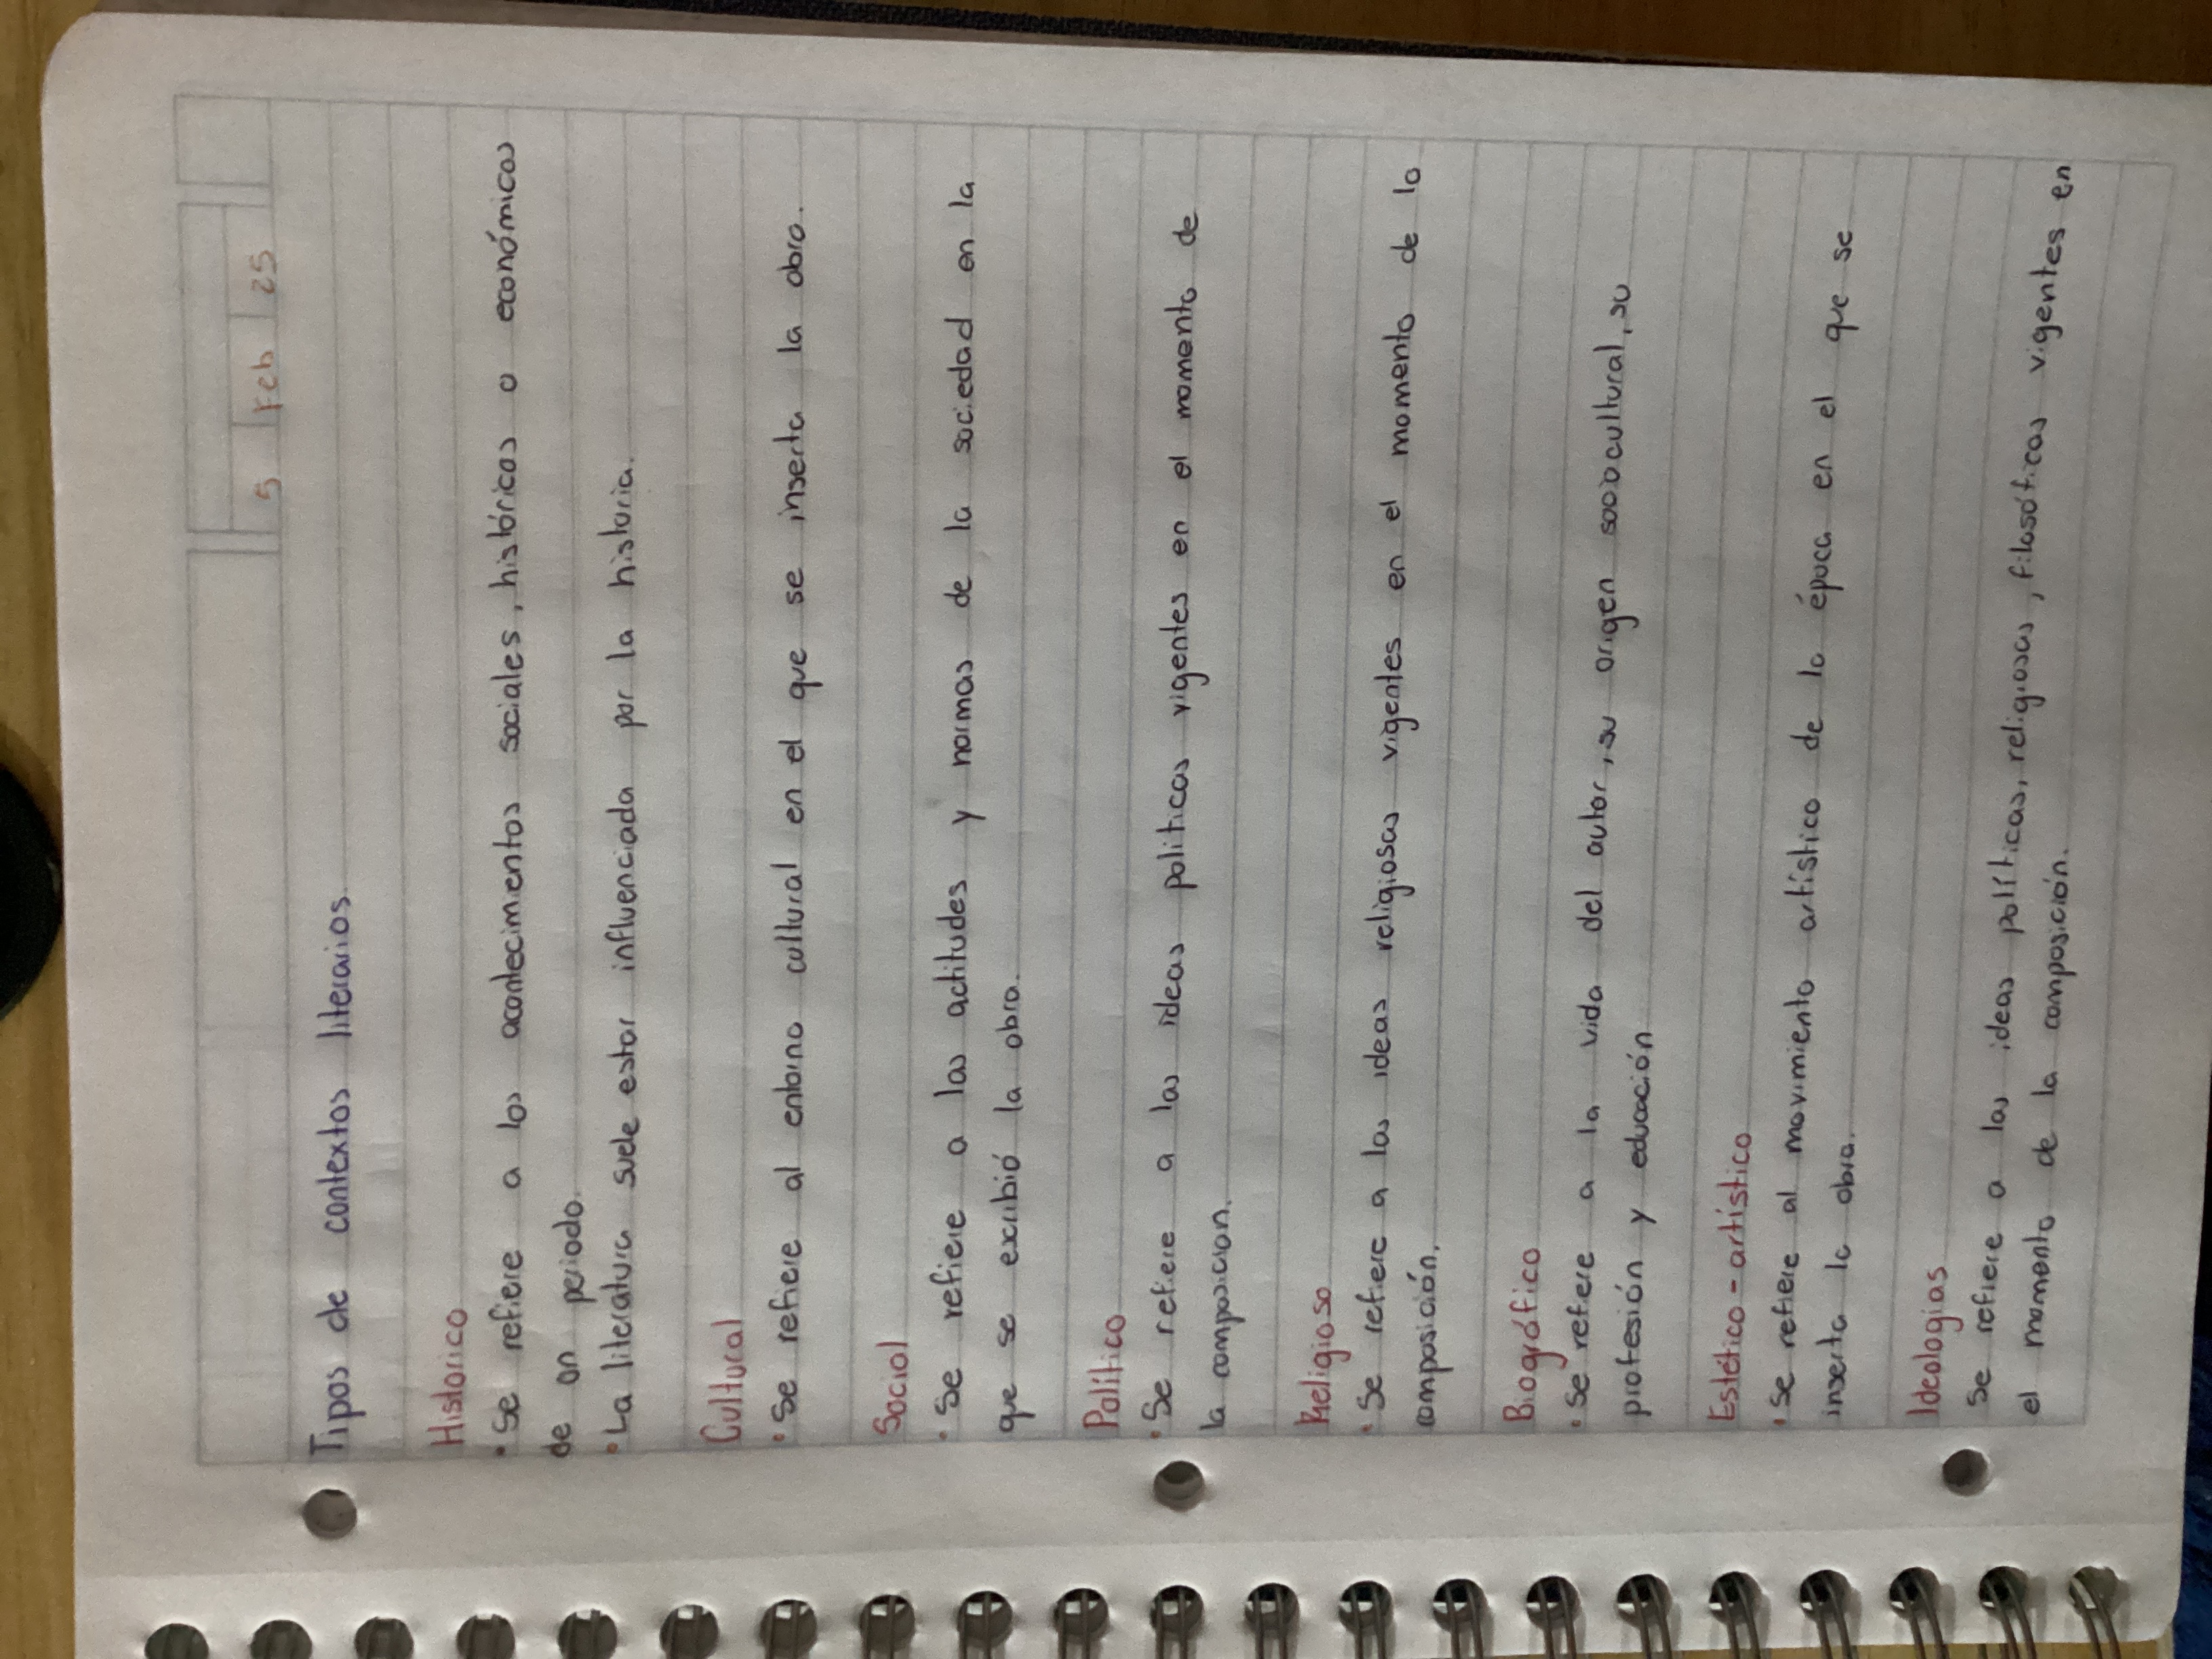 5 Feb 25
Tipos de contextos literarios.
Historico
• Se refiere a los acontecimientos sociales, históricos o económicos
de un periodo.
• La literatura suele estar influenciada por la historia.
Cultural
• Se refiere al entorno cultural en el que se inserta la obra.
Social
• Se refiere a las actitudes y normas de la sociedad en la
que se escribió la obra.
Político
• Se refiere a las ideas politicas vigentes en el momento de
la composicion.
Religioso
• Se refiere a las ideas religiosas vigentes en el momento de la
composición.
Biográfico
• Se refiere a la vida del autor, su origen sociocultural, su
profesión y educación
Estético - artístico
• Se refiere al movimiento artístico de la época en el que se
inserta la obra.
Ideologias
Se refiere a las ideas políticas, religiosas, filosóficas vigentes en
el momento de la composición.